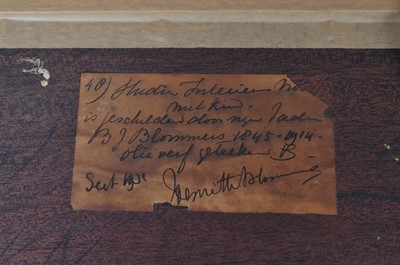 48) Studie Interieur Mo
met kind.
is geschilderd door mijn Vader
B J Blommers 1845-1914-
olie verf getekend B-
Sept 1931
Henriette Blommers